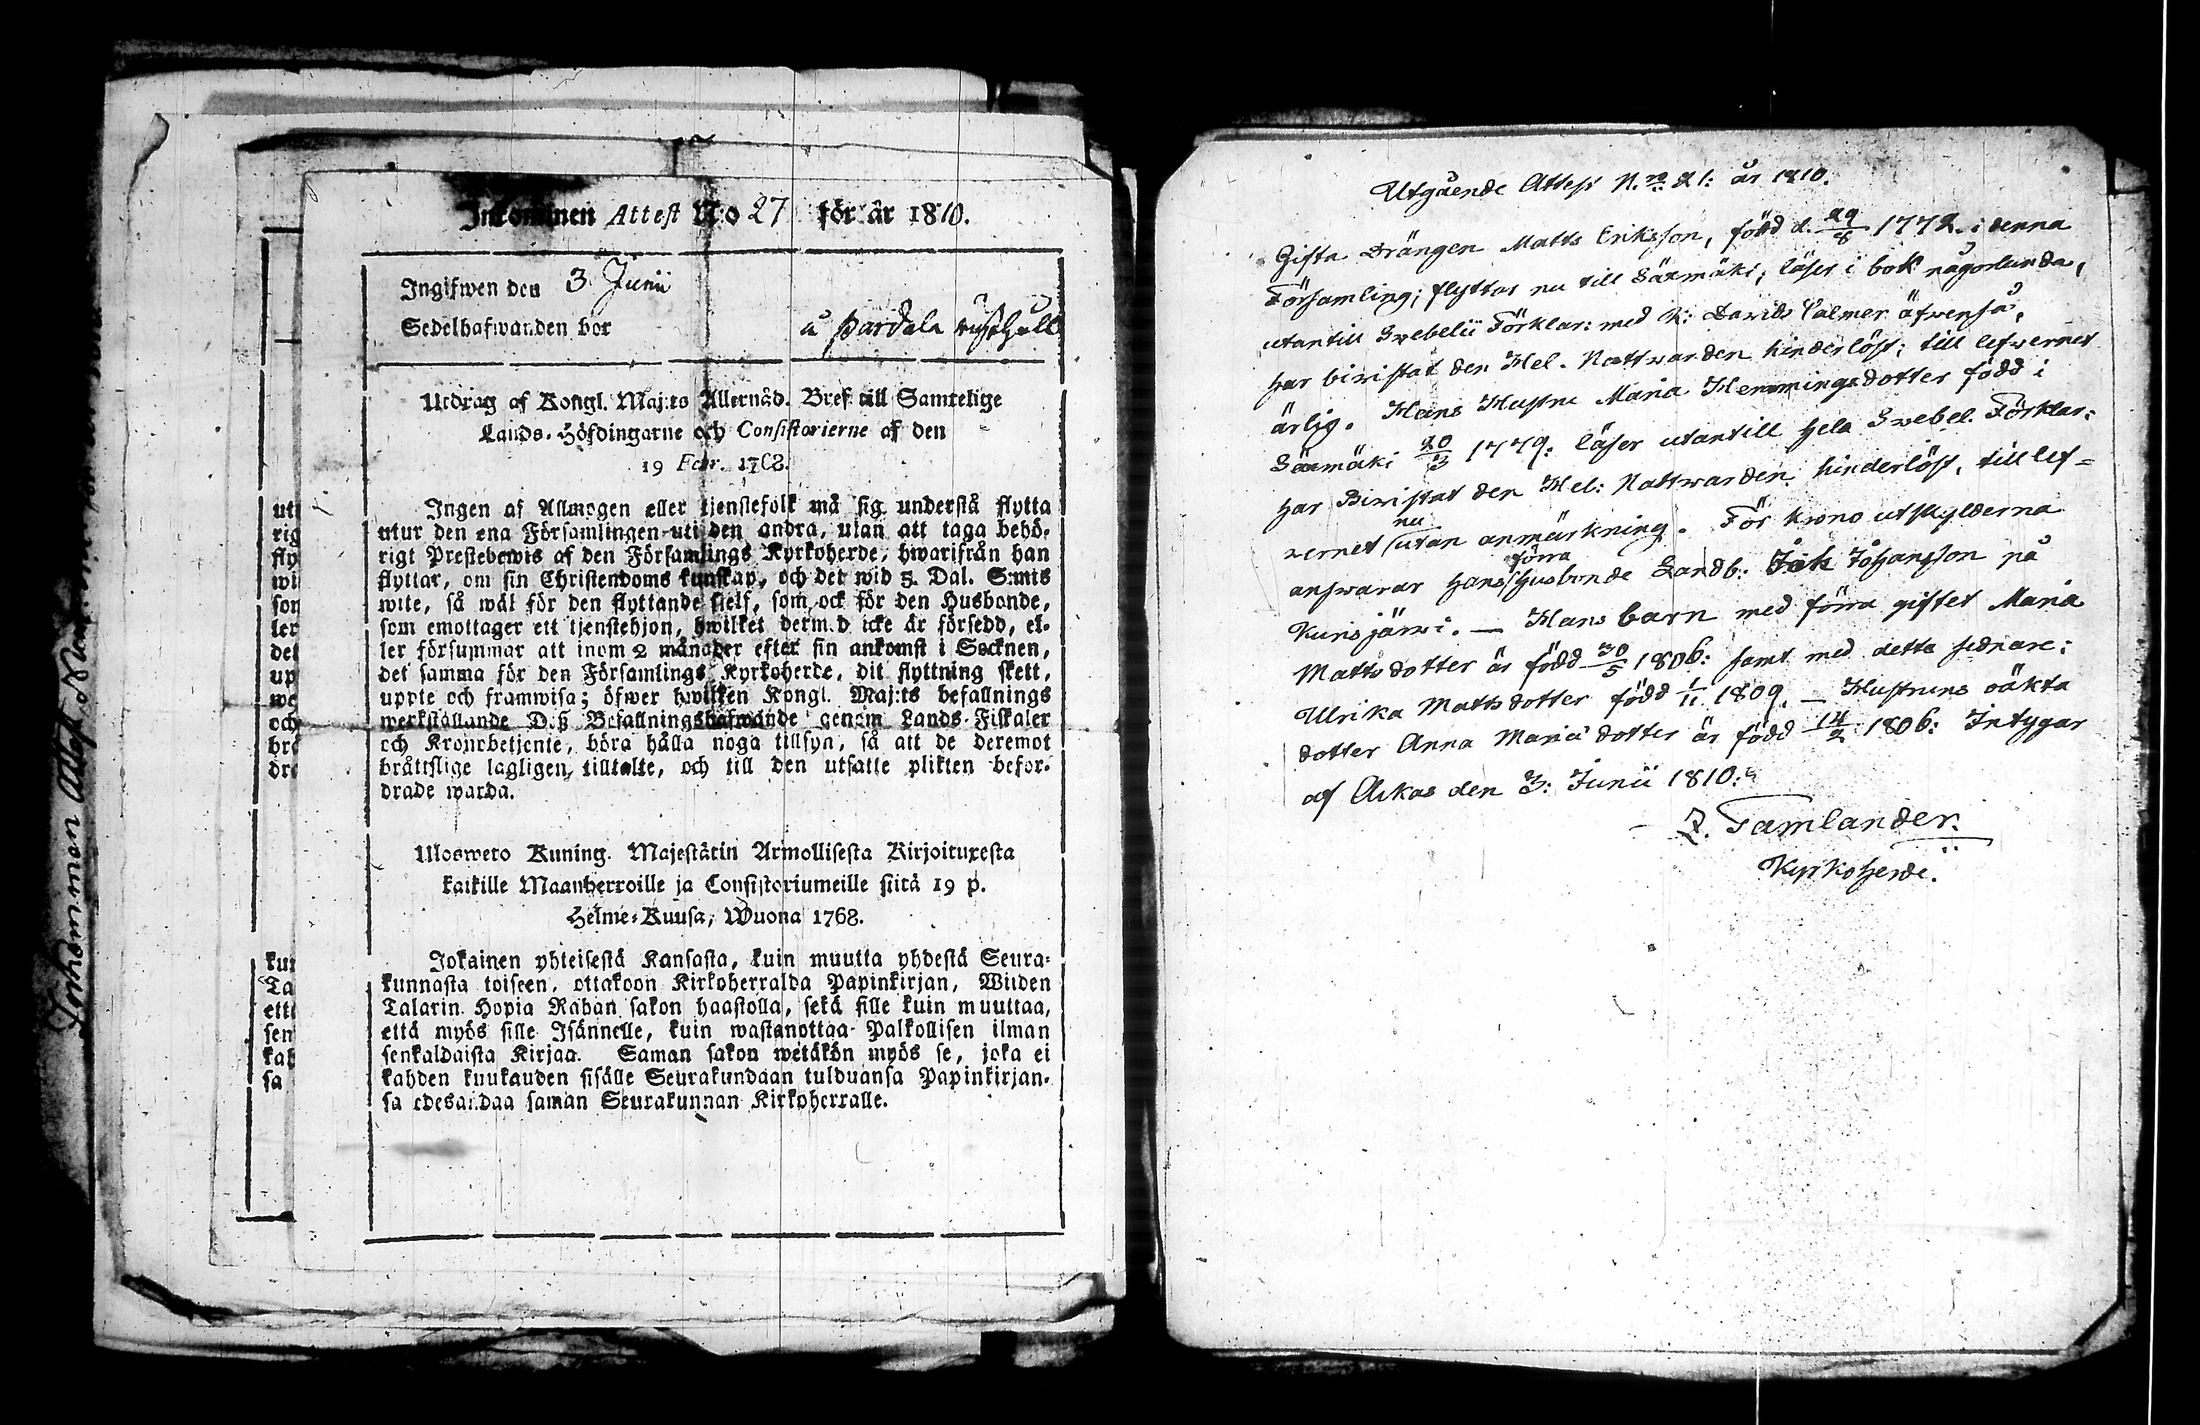 Inkommen Attest N:o 27 för år 1810.
Ingifwen den 3 Junii
Sedelhafwanden bor å Pardala
Utdrag af Kongl. Maj:ts Allernåd. Bref till Samtelige
Lands-Höfdingarne och Consistorierne af den
19 Febr. 1768.
Ingen af Allmogen eller tjenstefolk må sig understå flytta
utur den ena Församlingen uti den andra, utan att taga behö-
rigt Prestebewis af den Församlings Kyrkoherde, hwarifrån han
flyttar, om sin Christendoms kunskap, och det wid 5. Dal. S:mts
wite, så wäl för den flyttande sjelf, som ock för den Husbonde,
som emottager ett tjenstehjon, hwilket derm.d icke är försedd, el-
ler försummar att inom 2 månader efter sin ankomst i Socknen,
det samma för den Församlings Kyrkoherde, dit flyttning skett,
uppte och framwisa; öfwer hwilken Kongl. Maj:ts befallnings
werkställande D.ß Befallningshafwande genom Lands-Fiskaler
och Kronobetjente, böra hålla noga tillsyn, så att de deremot
bråttslige lagligen tilltalte, och till den utsatte plikten befor-
drade warda.
Ulosweto Kuning. Majestätin Armollisesta Kirjoituxesta
kaikille Maanherroille ja Consistoriumeille siitä 19 p.
Helme-Kuusa, Wuona 1768.
Jokainen yhteisestä Kansasta, kuin muutta yhdestä Seura-
kunnasta toiseen, ottakoon Kirkoherralda Papinkirjan, Wiiden
Talarin Hopia Rahan sakon haastolla, sekä sille kuin muuttaa,
että myös sille Isännelle, kuin wastanottaa Palkollisen ilman
senkaldaista Kirjaa. Saman sakon wetäkön myös se, joka ei
kahden kuukauden sisälle Seurakundaan tulduansa Papinkirjan-
sa edesandaa saman Seurakunnan Kirkoherralle.
uti
rig
fly
wi
son
ler
det
up
we
och
brå
dra
kun
Ta
ett
sen
kah
sa
Utgående Attest N.ro 21: år 1810.
Gifta Drängen Matts Eriksson, född d. 29/8 1772. i denna
Församling; flyttar nu till Säxmäki; läser i bok någorlunda,
utantill Swebelii Förklar: med K: Davids Palmer äfwenså,
har biwistat den Hel. Nattwarden hinderlöst; till lefwernet
ärlig. Hans Hustru Maria Hemmingsdotter född i
Säxmäki 20/3 1779: läser utantill hela Swebel. Förklar:
har Biwistat den Hel: Nattwarden hinderlöst, till lef=
wernet nu utan anmärkning. För krono utskylderna
answarar hans förra Husbonde Landb: Johansson på
Kurisjärwi. — Hans barn med förra giftet Maria
Mattsdotter är född 30/5 1806: samt med detta sednare:
Ulrika Mattsdotter född 1/11 1809. — Hustruns oäkta
dotter Anna Mariædotter är född 14/2 1806: Intygar
af Akas den 3: Junii 1810:
Z. Tamlander.
Kyrkoherde.